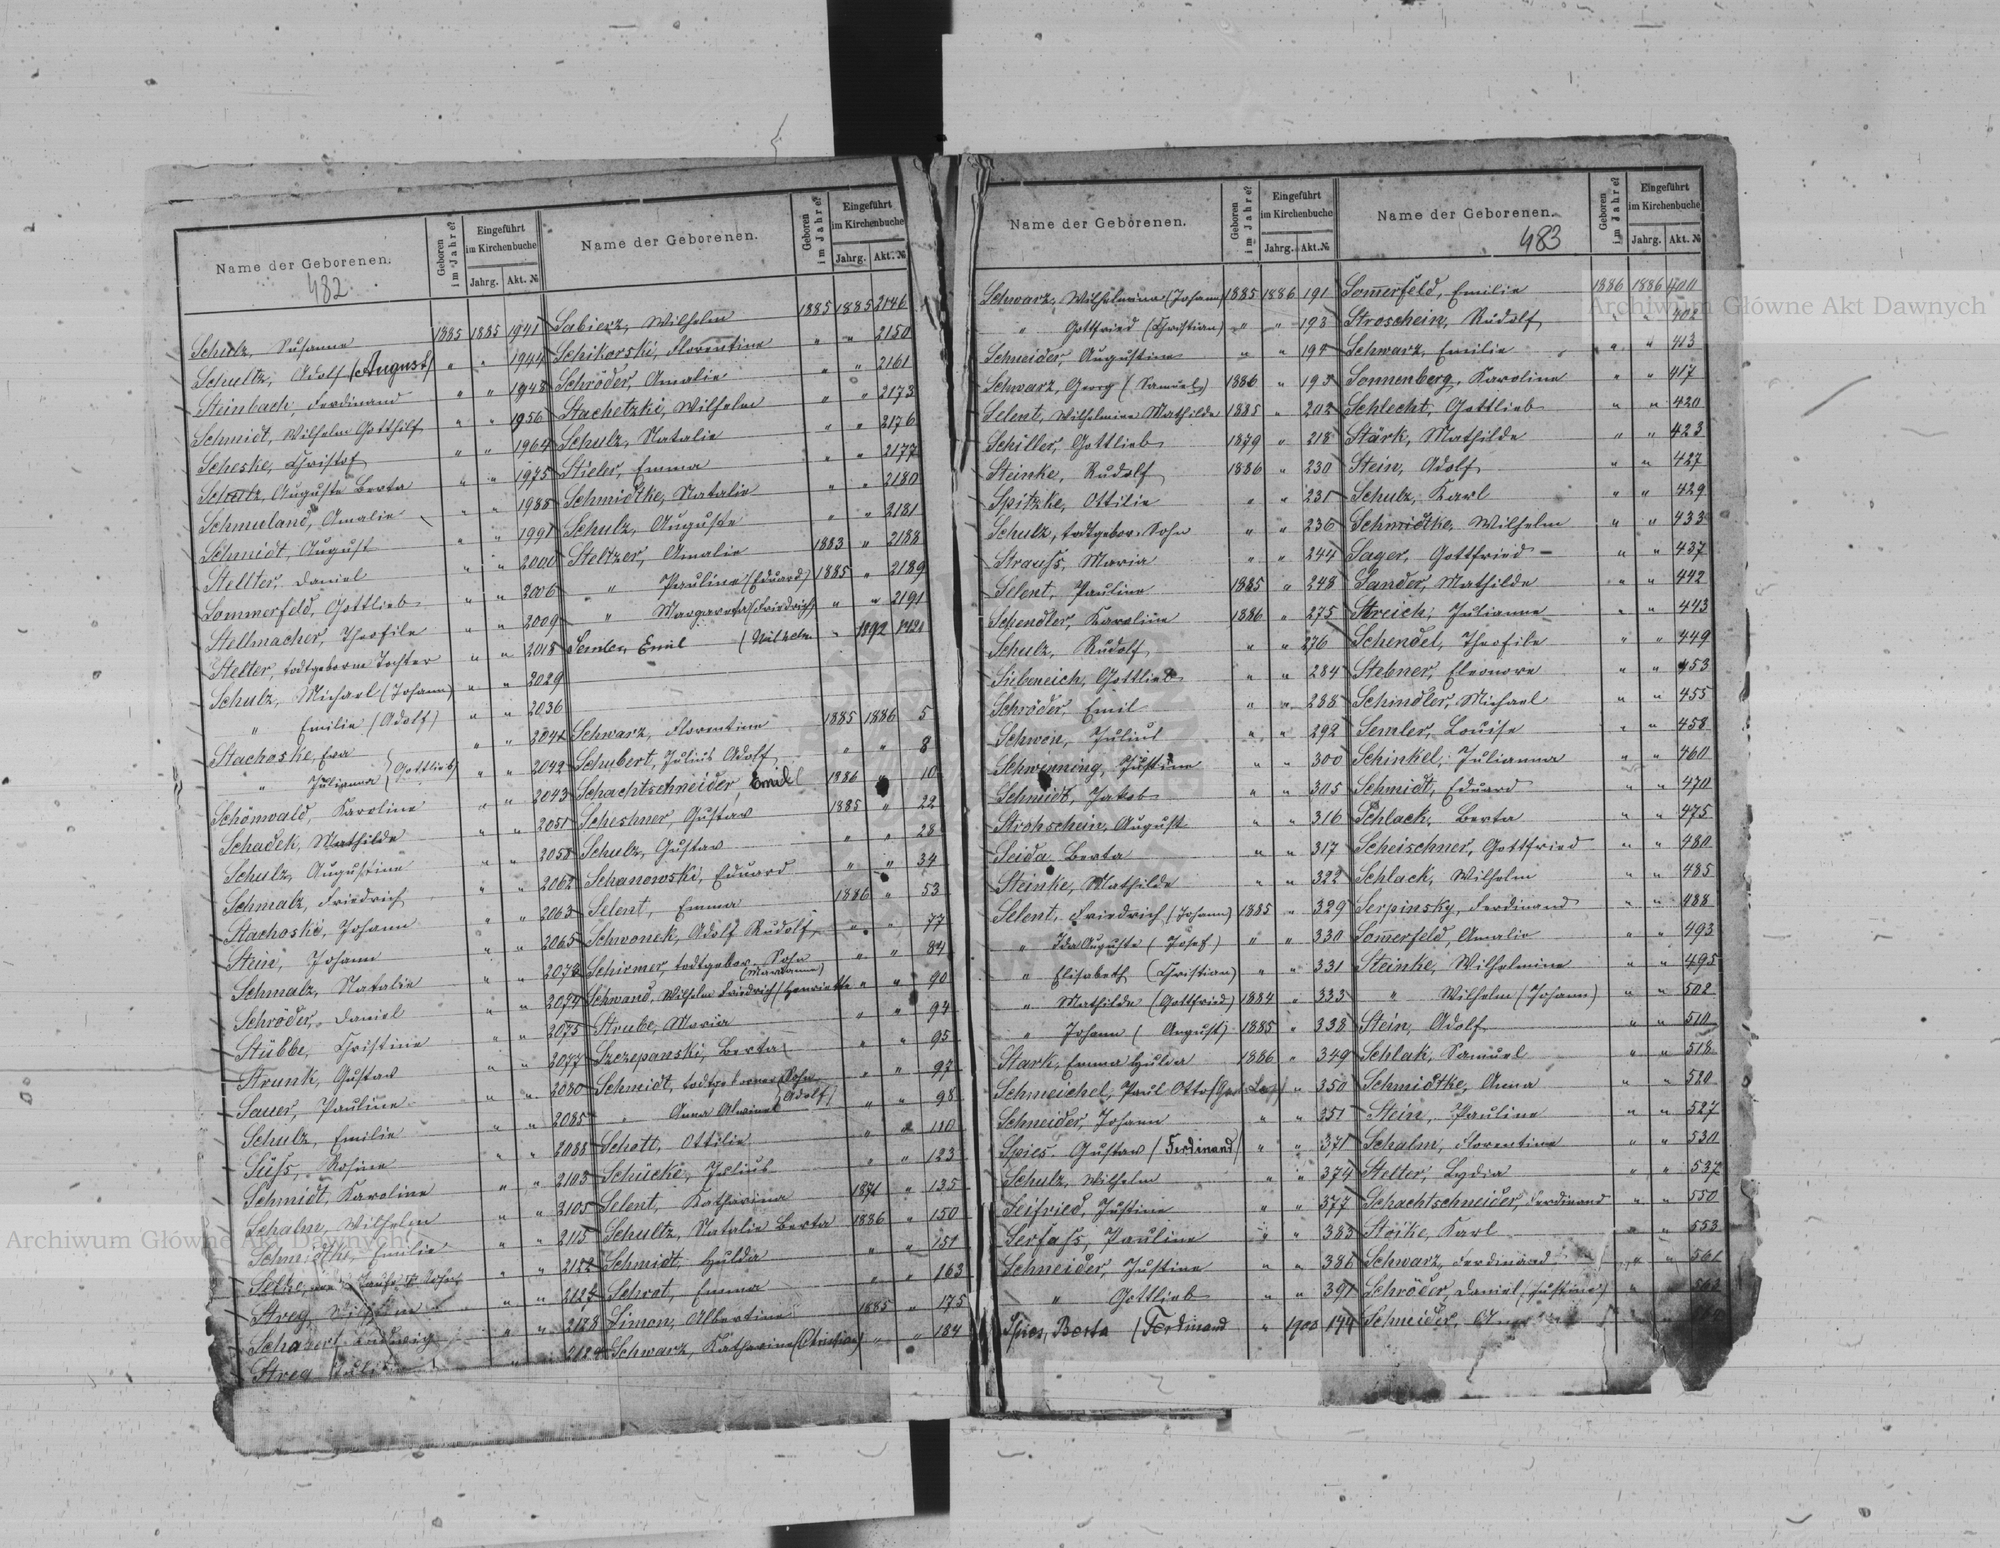 Name der Geborenen.
482
Geboren im Jahre?
Eingeführt im Kirchenbuche
Jahrg. Akt. №
Schulz, Susanna 1885 1885 1941
Schultz, Adolf (August) " " 1944
Steinbach, Ferdinand " " 1948
Schmidt, Wilhelm Gotthilf " " 1956
Scheske, Christof " " 1964
Schultz, Auguste Berta " " 1975
Schmuland, Amalie " " 1988
Schmidt, August " " 1991
Stellter, Daniel " " 2000
Sommerfeld, Gottlieb " " 2006
Stellmacher, Theofile " " 2009
Stelter, todtgeborne Tochter " " 2018
Schulz, Michael (Johann) " " 2029
" Emilie (Adolf) " " 2036
Stachoske, Eva " " 2041
" Julianna (Gottlieb) " " 2042
Schönwald, Karoline " " 2043
Schadek, Mathilde " " 2051
Schulz, Augustine " " 2058
Schmalz, Friedrich " " 2062
Stachoske, Johann " " 2063
Stein, Johann " " 2065
Schmalz, Natalie " " 2073
Schröder, Daniel " " 2074
Stübbe, Christine " " 2075
Strunk, Gustav " " 2077
Sauer, Pauline " " 2080
Schulz, Emilie " " 2085
Süss, Rosine " " 2088
Schmidt, Karoline " " 2103
Schalm, Wilhelm " " 2105
Schmidtke, Emilie " " 2115
" " 2122
Streg, " " 2127
Schubert, Ludwig " " 2128
Streg " " 2129
Name der Geborenen.
Geboren im Jahre?
Eingeführt im Kirchenbuche
Jahrg. Akt. №
Sabierz, Wilhelm 1885 1885 2146
Schikorski, Florentine " " 2150
Schröder, Amalie " " 2161
Stachetzki, Wilhelm " " 2173
Schulz, Natalie " " 2176
Stieler, Emma " " 2177
Schmidtke, Natalie " " 2180
Schulz, Auguste " " 2181
Steltzer, Amalie 1883 " 2188
" Pauline (Eduard) 1885 " 2189
" Margaretha (Friedrich) " " 2191
Semler, Emil " 1892
Schwarz, Florentine 1885 1886 5
Schubert, Julius Adolf " " 8
Schachtschneider, Emil 1886 " 10
Scheshner, Gustav 1885 " 22
Schulz, Gustav " " 28
Schanowski, Eduard " " 34
Selent, Emma 1886 " 53
Schwonek, Adolf Rudolf " " 77
Schirmer, todtgebor. Sohn " " 84
Schwand, Wilhelm Friedrich (Henriette " " 90
(Marianna)
Strube, Maria " " 94
Szczepanski, Berta " " 95
Schmidt, todtgeborner Sohn " " 97
" Anna Alwine (Adolf) " " 98
Schott, Ottilie " " 110
Schücke, Julius " " 123
Selent, Katharina 1871 " 135
Schultz, Natalie Berta 1886 " 150
Schmidt, Hulda " " 151
Schrot, Emma " " 163
Simon, Albertine 1885 " 175
Schwarz, Katharine (Christian) " " 184
Name der Geborenen.
Geboren im Jahre?
Eingeführt im Kirchenbuche
Jahrg. Akt. №
Schwarz, Wilhelmina (Johann) 1885 1886 191
" Gottfried (Christian) " " 193
Schneider, Augustine " " 194
Schwarz, Georg (Samuel) 1886 " 195
Selent, Wilhelmine Mathilde 1885 " 202
Schiller, Gottlieb 1879 " 218
Steinke, Rudolf 1886 " 230
Spitzke, Ottilie " " 231
Schulz, todtgebor. Sohn " " 236
Strauss, Maria " " 244
Selent, Pauline 1885 " 248
Schendler, Karoline 1886 " 275
Schulz, Rudolf " " 276
Siebeneich, Gottlieb " " 284
Schröder, Emil " " 288
Schwen, Julius " " 292
Schwenning, Justine " " 300
Schmidt, Jakob " " 305
Strohschein, August " " 316
Seida Berta " " 317
Steinke, Mathilde " " 322
Selent, Friedrich (Johann) 1885 " 329
" Ida Auguste (Josef) " " 330
" Elisabeth (Christian) " " 331
" Mathilde (Gottfried) 1884 " 333
" Johann (August) 1885 " 338
Stark, Emma Hulda 1886 " 349
Schmeichel, Paul Otto " 350
Schneider, Johann " " 351
Spies. Gustav (Ferdinand) " " 371
Schulz, Wilhelm " " 374
Seifried, Justine " " 377
Serfass, Pauline " " 383
Schneider, Justine " " 386
" Gottlieb " " 391
Spies, Berta (Ferdinand " 1900 144
Name der Geborenen.
483
Geboren im Jahre?
Eingeführt im Kirchenbuche
Jahrg. Akt. №
Somerfeld, Emilie 1886 1886 400
Stroschein, Rudolf " " 402
Schwarz, Emilie " " 413
Sonnenberg, Karoline " " 417
Schlecht, Gottlieb " " 420
Stärk, Mathilde " " 423
Stein, Adolf " " 427
Schulz, Karl " " 429
Schmidtke, Wilhelm " " 433
Sager, Gottfried " " 437
Sander, Mathilde " " 442
Streich, Julianne " " 443
Schendel, Theofile " " 449
Stebner, Eleonore " " 453
Schindler, Michael " " 455
Semler, Louise " " 458
Schinkel, Julianna " " 460
Schmidt, Eduard " " 470
Schlack, Berta " " 475
Scheischner, Gottfried " " 480
Schlack, Wilhelm " " 485
Serpinsky, Ferdinand " " 488
Somerfeld, Amalie " " 493
Steinke, Wilhelmine " " 495
" Wilhelm (Johann) " " 502
Stein, Adolf " " 510
Schlak, Samuel " " 518
Schmidtke, Anna " " 520
Stein, Pauline " " 527
Schalm, Florentine " " 530
Stelter, Lydia " " 537
Schachtschneider, Ferdinand " " 550
Stoike, Karl " " 553
Schwarz, Ferdinand " " 561
Schröder, Daniel (Justine) "
Schneider,
Archiwum Główne Akt Dawnych
Archiwum Główne Akt Dawnych